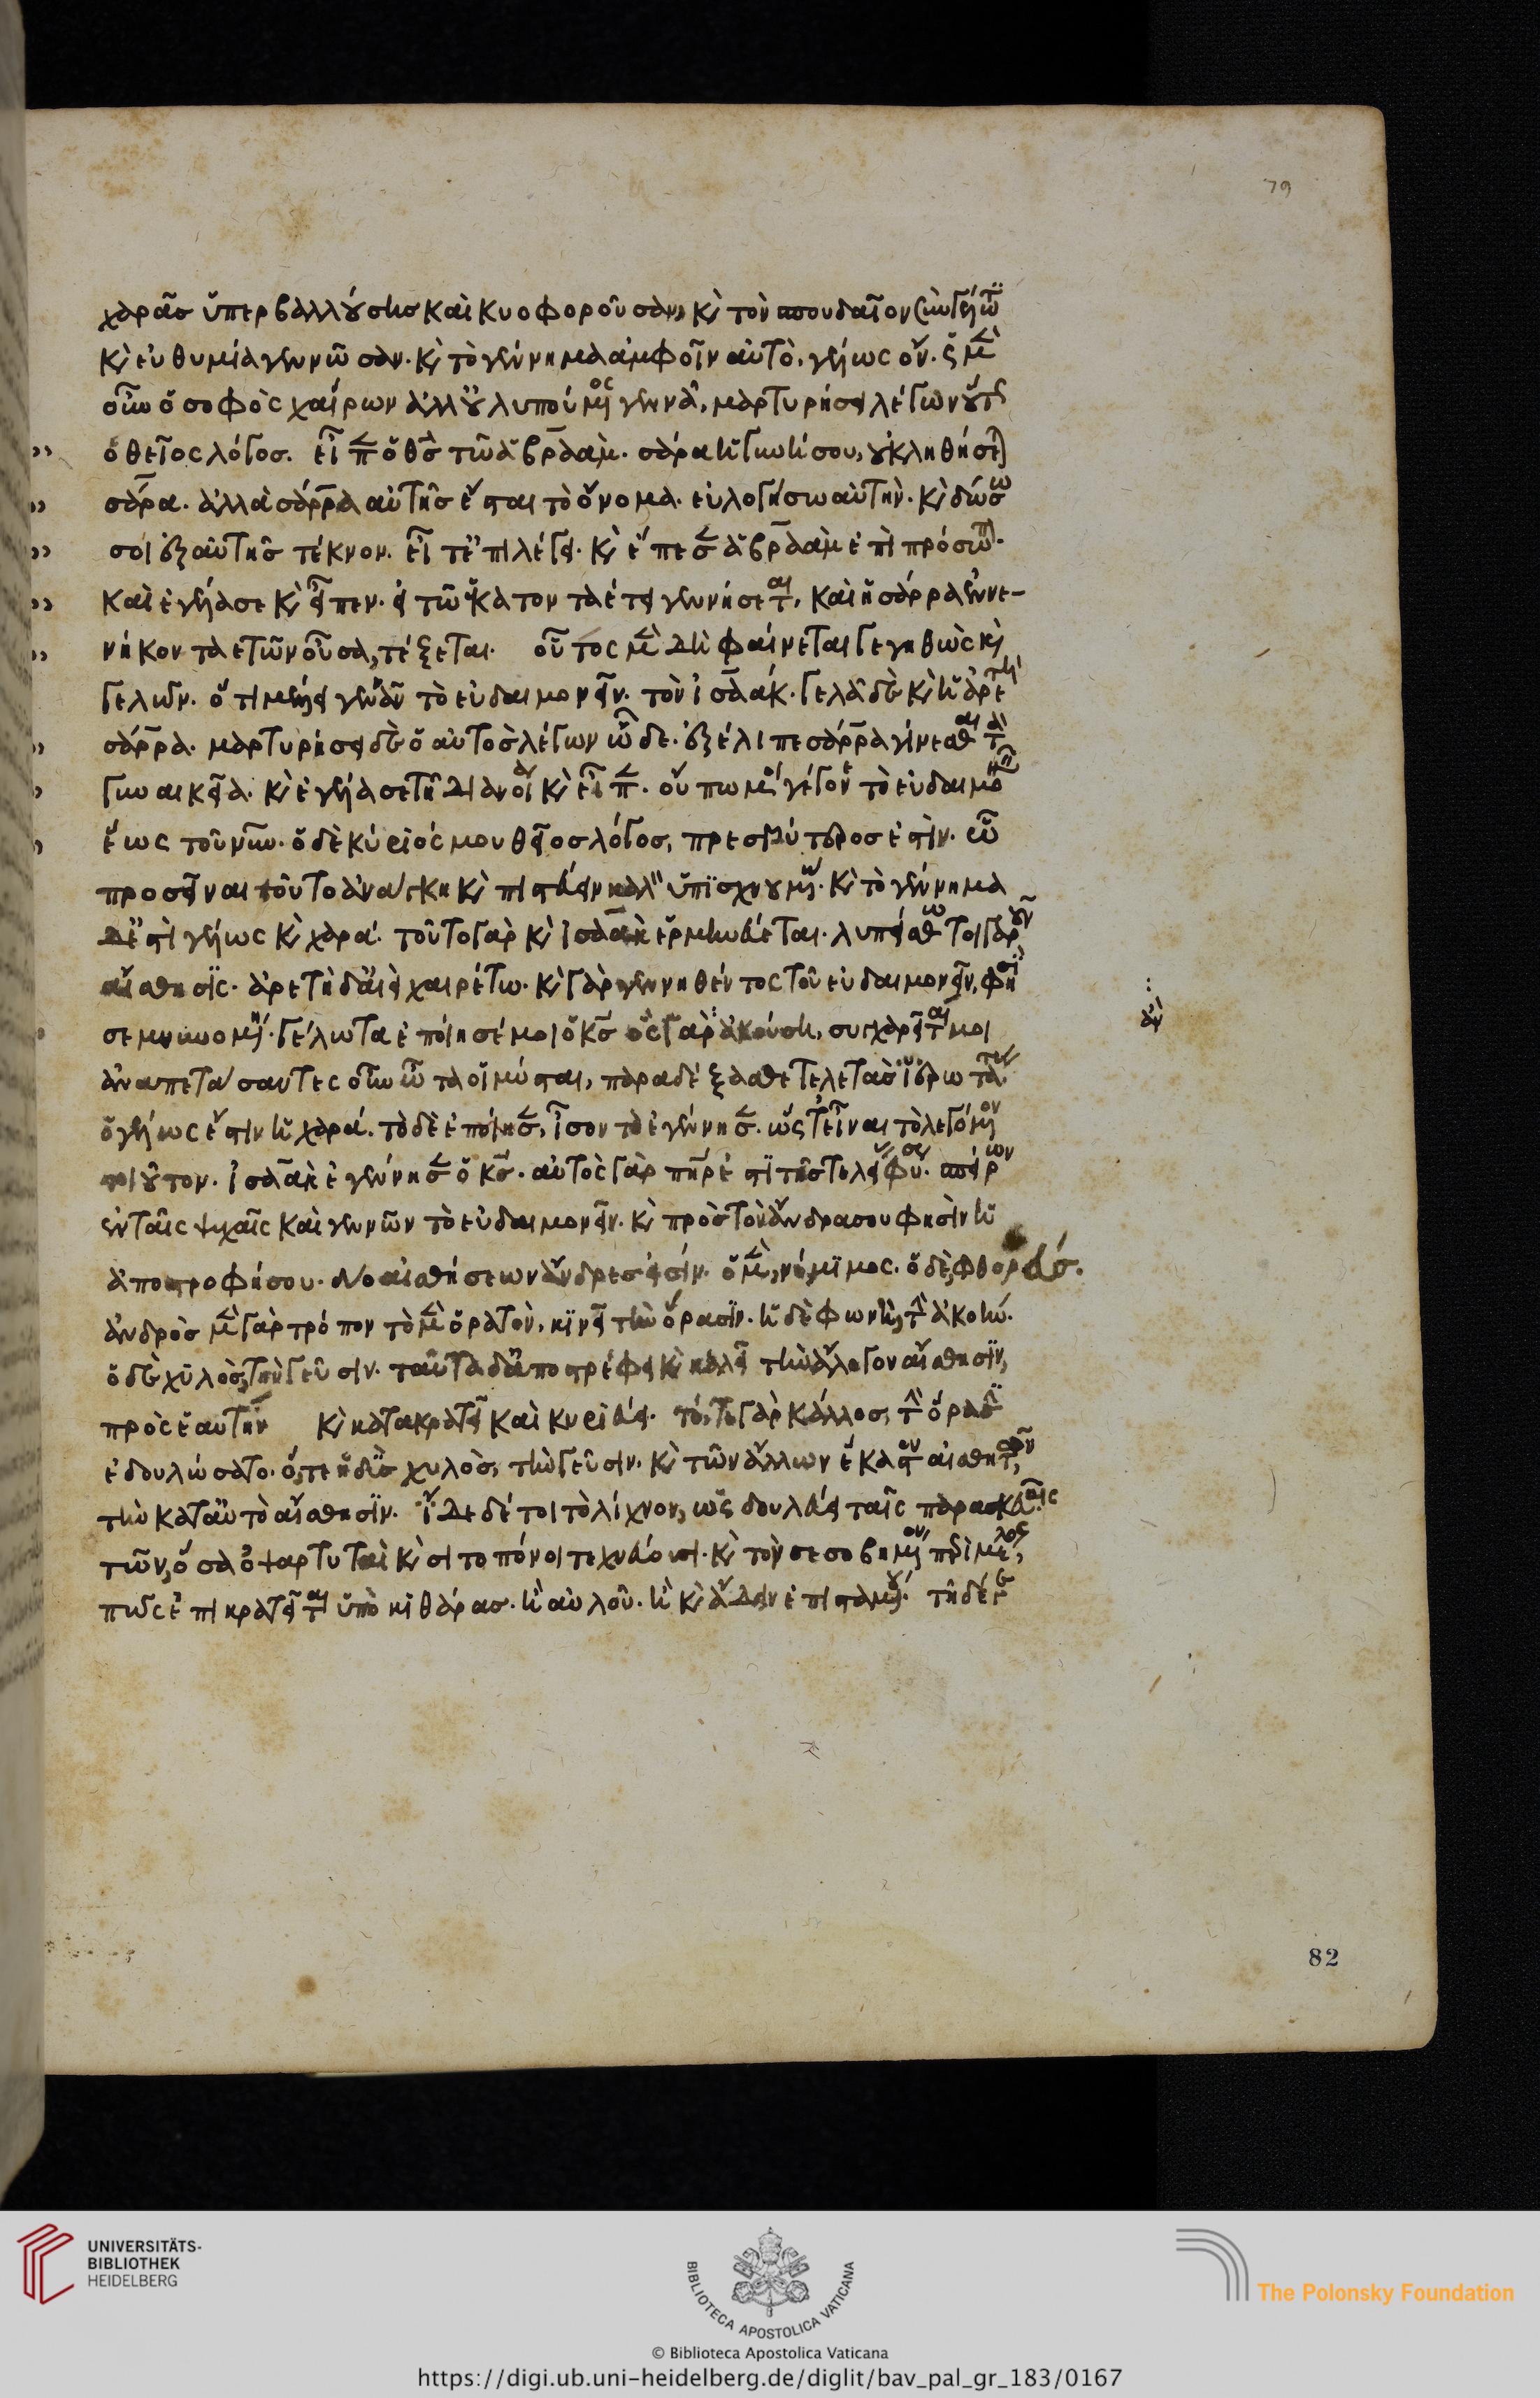 χαρᾶς ὑπερβαλλούσης καὶ κυοφοροῦσαν, κὶ τὸν σπουδαῖον σὺν γέλωτι
κὶ εὐθυμίᾳ γεννῶσαν. κὶ τὸ γέννημα ἀμφοῖν αὐτὸ, γέλως οὖν. ὅτι μὲν
οὖν ὁ σοφὸς χαίρων ἀλλ' οὐ λυπούμενος γεννᾷ, μαρτυρήσει λέγων οὕτως
ὁ θεῖος λόγος. εἶπεν ὁ θς τῷ ἀβραὰμ. σάρα ἡ γυνή σου, οὐ κληθήσεται
σάρα. ἀλλὰ σάρρα αὐτῆς ἔσται τὸ ὄνομα. εὐλογήσω αὐτὴν. κὶ δώσω
σοι ἐξ αὐτῆς τέκνον. εἶτ' ἐπιλέγει. κὶ ἔπεσεν ἀβραὰμ ἐπὶ πρόσωπον.
καὶ ἐγέλασε κὶ εἶπεν. εἰ τῷ ἑκατονταέτει γεννήσεται, καὶ ἡ σάρρα ἐννε-
νήκοντα ἐτῶν οὖσα, τέξεται. οὗτος μὲν δὴ φαίνεται γεγηθὼς κὶ
γελῶν. ὅτι μέλλει γεννᾶν τὸ εὐδαιμονεῖν. τὸν ἰσαάκ. γελᾷ δὲ κὶ ἡ ἀρετὴ
σάρρα. μαρτυρήσει δὲ ὁ αὐτὸς λέγων ὧδε. ἐξέλιπε σάρρα γίνεσθαι τὰ
γυναικεῖα. κὶ ἐγέλασε τῇ διανοίᾳ κὶ εἶπεν. οὔπω μοι γέγονε τὸ εὐδαιμονεῖν
ἕως τοῦ νῦν. ὁ δὲ κύριός μου θεῖος λόγος, πρεσβύτερος ἐστὶν. ᾧ
προσεῖναι τοῦτο ἀνάγκη κὶ πιστεύειν καλὸν ὑπισχνουμένῳ. κὶ τὸ γέννημα
δέ ἐστι γέλως κὶ χαρά. τοῦτο γὰρ κὶ ἰσαὰκ ἑρμηνεύεται. λυπείσθω τοιγαροῦν
αἴσθησις. ἀρετὴ δ' ἀεὶ χαιρέτω. κὶ γὰρ γεννηθέντος τοῦ εὐδαιμονεῖν, φησὶ
σεμνυνομένη. γέλωτα ἐποίησέ μοι ὁ κς ὃς γὰρ ἀκούσῃ, συγχαρεῖται μοι
ἀναπετάσαντες οὖν ὦτα οἱ μύσται, παραδέξασθε τελετὰς ἱερωτάτας
ὁ γέλως ἐστὶν ἡ χαρά. τὸ δὲ ἐποίησεν, ἴσον τὸ ἐγέννησεν. ὥστ' εἶναι τὸ λεγόμενον
τοιοῦτον. ἰσαὰκ ἐγέννησεν ὁ κς. αὐτὸς γὰρ πηρέ ἐστι τῆς τελείας φύσεως. σπείρων
ἐν ταῖς ψυχαῖς καὶ γεννῶν τὸ εὐδαιμονεῖν. κὶ πρὸς τὸν ἄνδρα σου φησὶν ἡ
ἀποστροφή σου. δύο αἰσθήσεων ἄνδρες εἰσίν. ὁ μὲν, νόμιμος. ὁ δὲ, φθορεύς.
ἀνδρὸς μὲν γὰρ τρόπον τὸ μὲν ὁρατὸν, κινεῖ τὴν ὅρασιν. ἡ δὲ φωνὴ, τὴν ἀκοήν.
ὁ δὲ χυλὸς, τὴν γεῦσιν. ταῦτα δ' ἀποστρέφει κὶ καλεῖ τὴν ἄλογον αἴσθησιν,
πρὸς ἑαυτὴν κὶ κατακρατεῖ καὶ κυριεύει. τό, τε γὰρ κάλλος, τὴν ὅρασιν
ἐδουλώσατο. ὅ, τε ἡδὺς χυλὸς, τὴν γεῦσιν. κὶ τῶν ἄλλων ἕκαστον αἰσθητῶν,
τὴν κατ' αὐτὸ αἴσθησιν. ἴδε δέ τοι τὸ λίχνον, ὡς δουλεύει ταῖς παρασκευαῖς
τῶν, ὅσα ὀψαρτυταὶ κὶ σιτοπόνοι τεχνεύουσι. κὶ τὸν σεσοβημένον περὶ μέλος,
πῶς ἐπικρατεῖται ὑπὸ κιθάρας. ἢ αὐλοῦ. ἢ κὶ ᾄδειν ἐπισταμένου. τῇ δέ γε
79
82
UNIVERSITÄTS-
BIBLIOTHEK
HEIDELBERG
BIBLIOTECA APOSTOLICA VATICANA
The Polonsky Foundation
© Biblioteca Apostolica Vaticana
https://digi.ub.uni-heidelberg.de/diglit/bav_pal_gr_183/0167